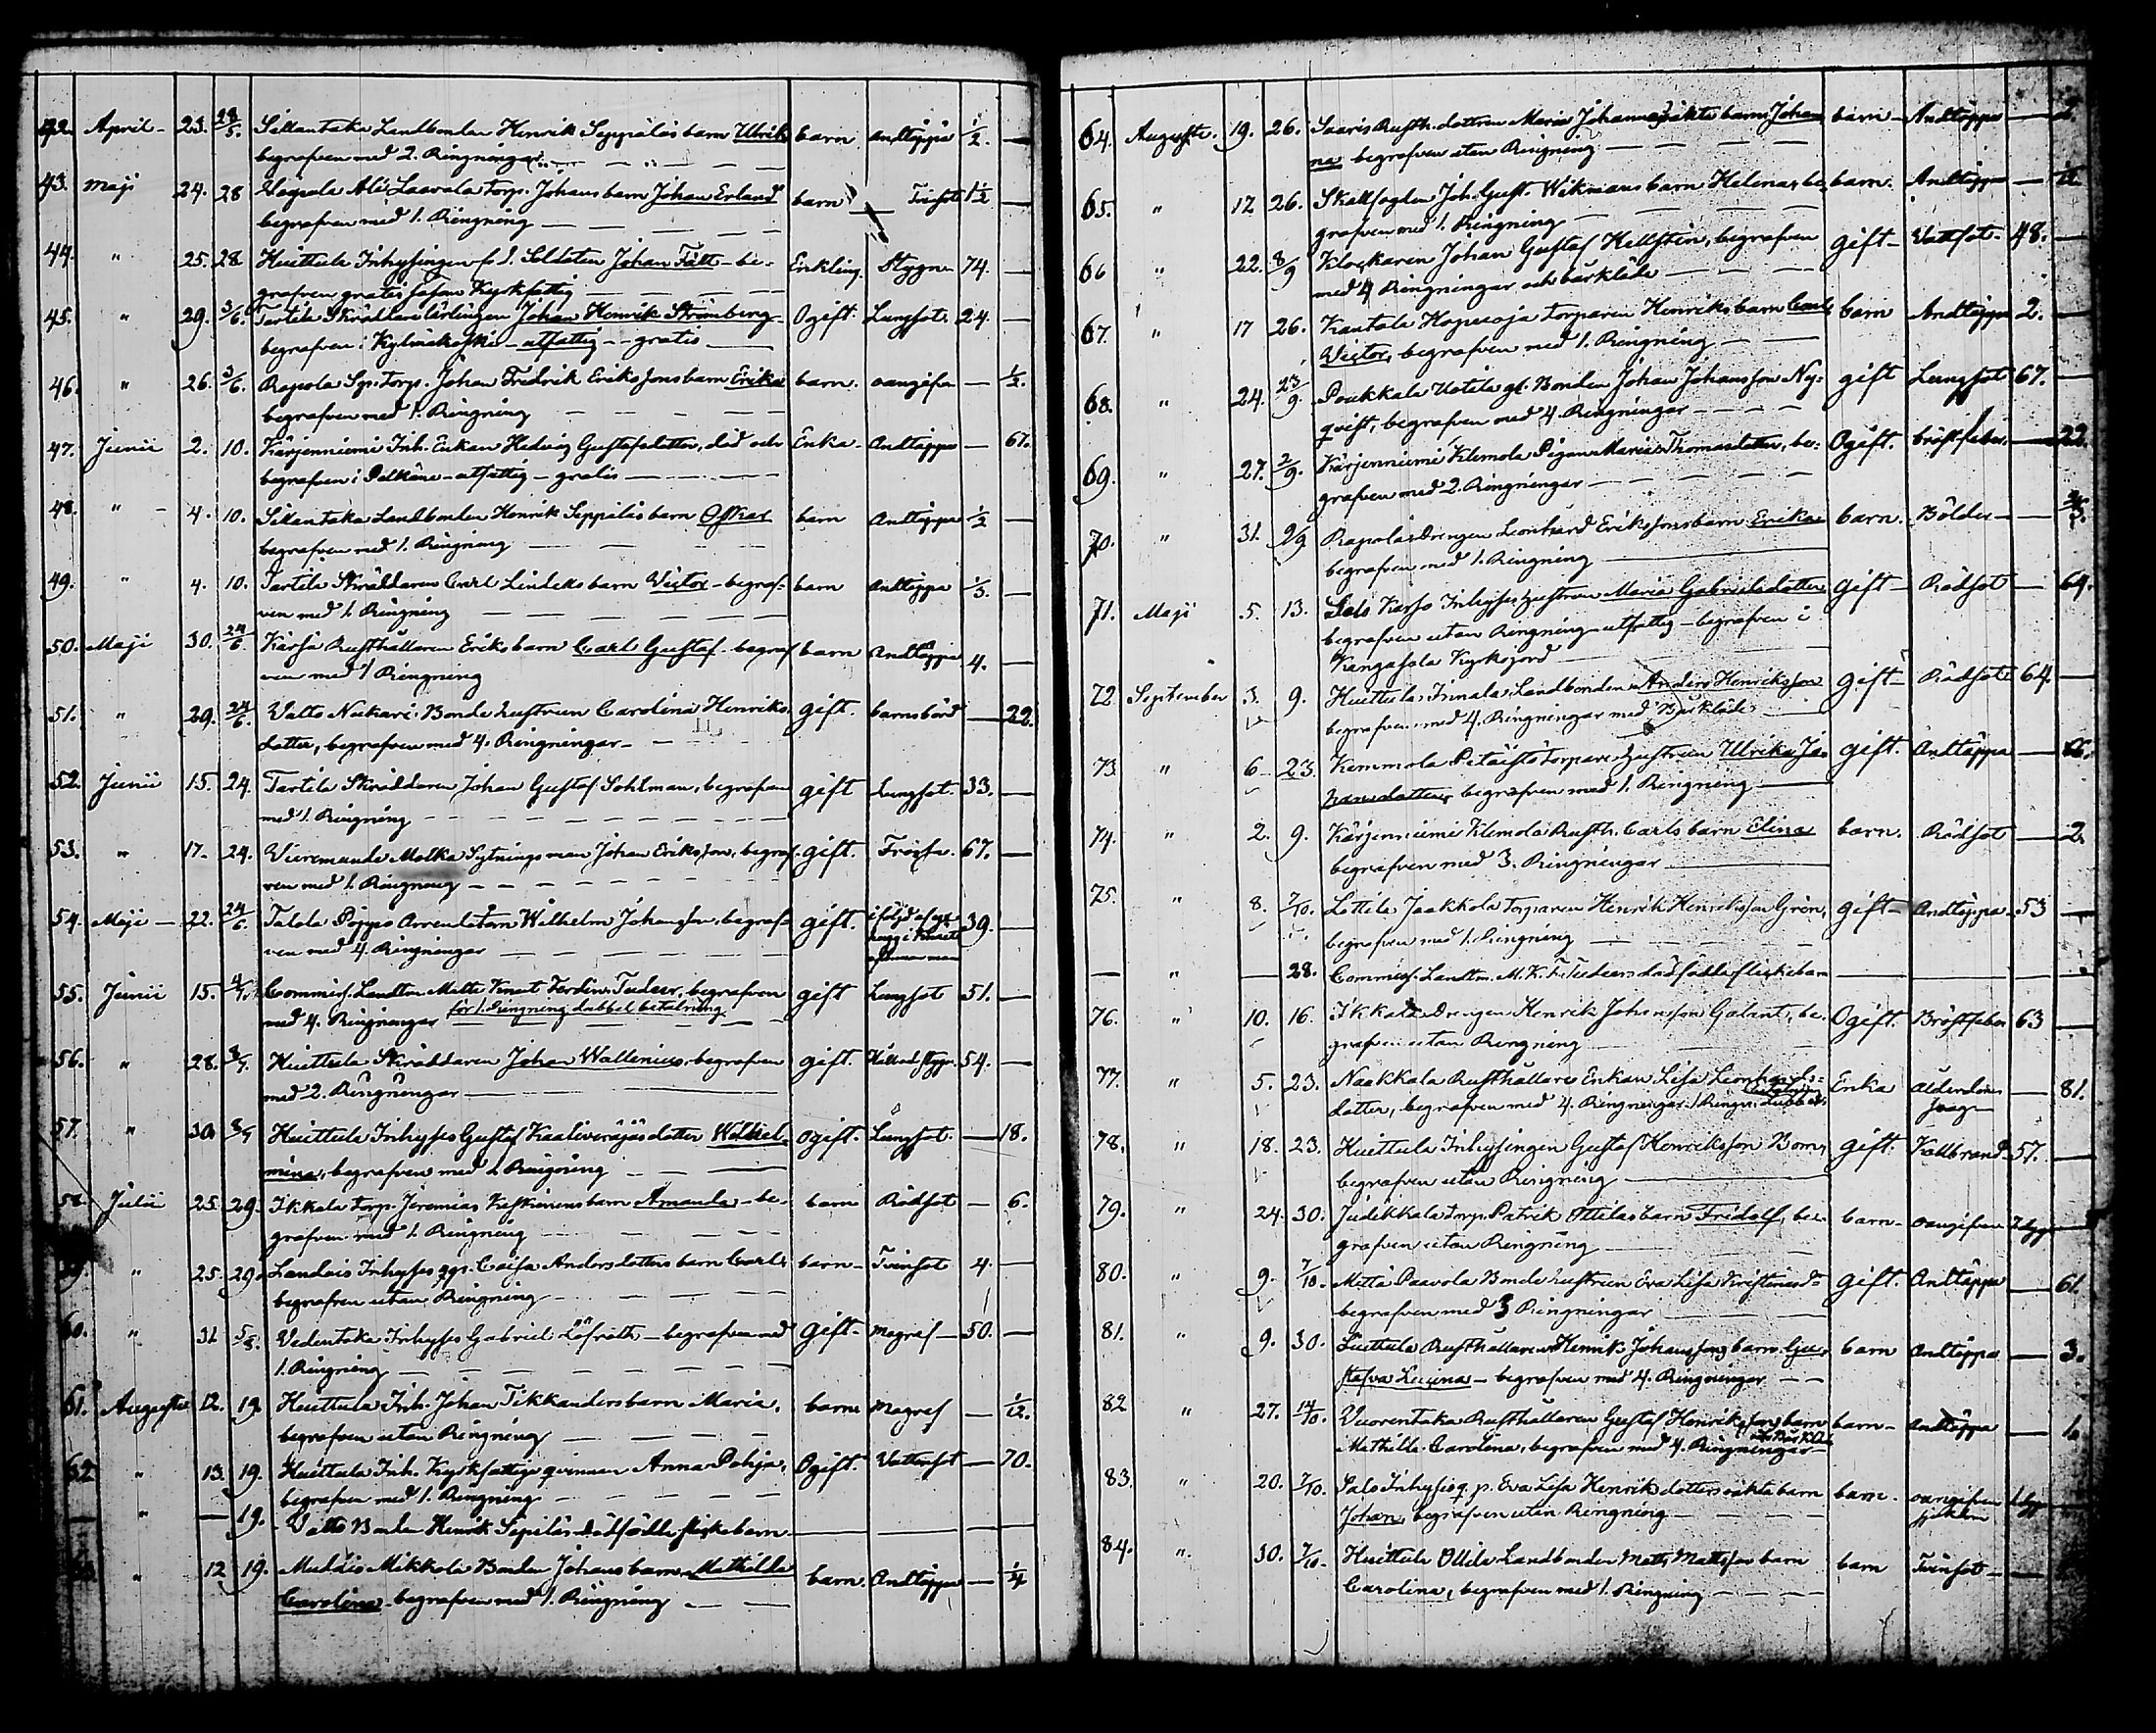 42. April - 23. 28/5. Sillantaka Landbonden Henrik Seppäläs barn Ulrik barn Andtäppa 1/2. —
begrafven med 2. Ringningar
43. Maji 24. 28 Laavala torp. Johans barn Johan Erland barn Tvinsot 1 1/2 —
begrafven med 1. Ringning
44. " 25. 28 Huittula Inhysingen f. d. Soldaten Johan Fält - be- Enkling. Stygn 74. —
grafven gratis såsom Kyrkfattig
45. " 29. 3/6. Tartila Skräddare lärlingen Johan Henrik Strömberg Ogift Lungsot. 24. —
begrafven i Kylmäkoski - utfattig - gratis
46. " 26. 3/6. Rapola Sp. Torp. Johan Fredrik Erikssons barn Erika barn. oangifven — 1/2.
begrafven med 1. Ringning
47. Junii 2. 10. Kärjenniemi Inh. Enkan Hedvig Gustafsdotter, död och Enka - Andtäppa — 67.
begrafven i Pelkäne - utfattig - gratis
48. " 4. 10. Sillantaka Landbonden Henrik Seppäläs barn Oskar barn Andtäppa 1/2 —
begrafven med 1. Ringning
49. " 4. 10. Tartila Skräddaren Carl Lindells barn Victor - begraf- barn Andtäppa 1/3. —
ven med 1. Ringning
50. Maji 30. 24/6. Kärsa Rusthållaren Eriks barn Carl Gustaf begraf barn Andtäppa 4. —
ven med 1 Ringning
51. " 29. 24/6. Walto Nukari Bonde hustrun Carolina Henriks gift. barnsbörd — 22.
dotter, begrafven med 4. Ringningar
52. Junii 15. 24. Tartila Skräddaren Johan Gustaf Sohlman, begrafven gift Lungsot. 33. —
med 1. Ringning
53. " 17. 24. Vieremande Molka Sytningsman Johan Eriksson, begraf gift. Frossa 67. —
ven med 1. Ringning
54. Maji - 22. 24/6. Talola Pappas Arrendatorn Wilhelm Johansson, begraf- gift. i följd af 39. —
ven med 4. Ringningar hugg i knäet
55. Junii 15. Commiss. Landtm. Malte Knut Ferdin. Tudeer, begrafven gift Lungsot 51. —
med 4. Ringningar för 1. Ringning dubbel betalning
56. " 28. 8/7. Huittula Skräddaren Johan Wallenius, begrafven gift. Håll och stygn. 54. —
med 2. Ringningar
57. " 30 8/7 Huittula Inhyses Gustaf dotter Wilhel- ogift. Lungsot — 18.
mina, begrafven med 1. Ringning
58. Julii 25. 29. Ikkala torp. Jeremias Keskinens barn Amanda - be- barn Rödsot — 6.
grafven med 1. Ringning
" 25. 29. Landais Inhyses qp. Caisa Andersdotters barn Carl barn - Tvinsot 4. —
begrafven utan Ringning
60. " 31. 5/8. Vedentaka Inhyses Gabriel Löfroth - begrafven med gift - Magref - 50. —
1. Ringning
61. Augusti 12. 19. Huittula Inh. Johan Tikkanders barn Maria, barn Magref — 1/12.
begrafven utan Ringning
62. " 13. 19. Huittula Inh. Kyrkfattige qvinnan Anna Pohja, Ogift. Vattusot — 70.
begrafven med 1. Ringning
" — 19. Walto Bonden Henrik Sipiläs dödfödde flickebarn —
" 12 19. Muddais Mikkola Bonden Johans barn Mathilda barn. Andtäppa — 1/4
Carolina begrafven med 1. Ringning
64. Augusti. 19. 26. Saaris Rusth. dottren Maria Johannas oäkta barn Johan barn - Andtäppa —
na begrafven utan Ringning
65. " 17 26. Skallfogden Joh. Gust. Wikmans barn Helena, be barn. Andtäppa —
grafven med 1. Ringning
66 " 22. 8/9 Klockaren Johan Gustaf Hellsten, begrafven gift - Vattsot - 48. —
med 4 Ringningar och bårkläde
67. " 17 26. Kantala Haperoja torparen Henriks barn Carl barn Andtäppa 2. —
Victor, begrafven med 1. Ringning
68. " 24. 23/9. Poukkala Uotila gl. Bonden Johan Johansson Ny- gift Lungsot 67. —
qvist, begrafven med 4. Ringningar
69. " 27. 2/9. Kärjenniemi Klemola Pigan Maria Thomasdotter, be- Ogift. bröstfeber. — 22.
grafven med 2. Ringningar
70. " 31. 29 Rapola Drengen Leonhard Erikssons barn Erika barn. Bölder —
begrafven med 1. Ringning
71. Maji 5. 13. Salo Karso Inhyses hustrun Maria Gabrielsdotter gift - Rödsot — 69.
begrafven utan Ringning utfattig - begrafven i
Kangasala Kyrkojord
72 September 3. 9. Huittula Innala Landbonden Anders Henriksson gift - Rödsot 64. —
begrafven med 4. Ringningar med Bårkläde
73. " 6 23. Kemmola Pitäistö torpare hustrun Ulrika Jo- gift. Andtäppa —
hansdotter, begrafven med 1. Ringning
74. " 2. 9. Kärjenniemi Klemola Rusth. Carls barn Elina barn. Rödsot — 2.
begrafven med 3. Ringningar
75. " 8. 7/10. Lottila Jaakkola torparen Henrik Henriksson Grön, gift - Andtäppa 53 —
begrafven med 1. Ringning
— " — 28. Commiss. Landtm. M. K. F. Tudeers dödfödda flickebarn —
76. " 10. 16. Ikkala Drengen Henrik Johansson Galant, be- Ogift. Bröstfeber 63 —
grafven utan Ringning
77. " 5. 23. Naakkala Rusthållare Enkan Lisa Leonhards- Enka Ålderdoms — 81.
dotter, begrafven med 4. Ringningar 1 Ringn. dubbel
78. " 18. 23. Huittula Inhysingen Gustaf Henriksson Bom, gift. Kallbrand 57. —
begrafven utan Ringning
79. " 24. 30. Judikkala torp. Patrik Ottilas barn Fridolf, be- barn - oangifven
grafven utan Ringning
80. " 9. 7/10. Metti Paavola Bonde hustrun Eva Lisa Kristinsdr gift. Andtäppa — 61.
begrafven med 3 Ringningar
81. " 9. 30. Liuttula Rusthållaren Henrik Johanssons barn Gu- barn Andtäppa — 3.
stafva Lucina - begrafven med 4. Ringningar
82 " 27. 14/10. Vuorentaka Rusthållaren Gustaf Henrikssons barn barn - Andtäppa —
Mathilda Carolina, begrafven med 4. Ringningar
83. " 20. 7/10. Salo Inhyses q. p. Eva Lisa Henriksdotters oäkta barn barn - oangifven
Johan, begrafven utan Ringning sjukdom
84. " 30. 7/10. Huittula Ollila Landbonden Matts Mattsson barn barn Tvinsot —
Carolina, begrafven med 1. Ringning